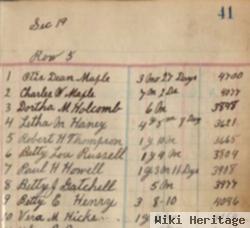 41
Sec 19
Row 5
1 Otis Dean Maple 3 Mo 27 Days 4700
2 Charles W. Maple 7 M 2 Da 4077
3 Dortha M Holcomb 6 M 3898
4 Letha M Haney 3621
5 Robert H Thompson 1 Y 10 M 3665
6 Betty Lou Russell 1 Y 9 M 3804
7 Paul H Howell 11 Days 3918
8 Betty J Gatchell 5 M 3977
9 Betty E Henry 3 8-10 4096
10 Vera M Hicks
Wiki Heritage